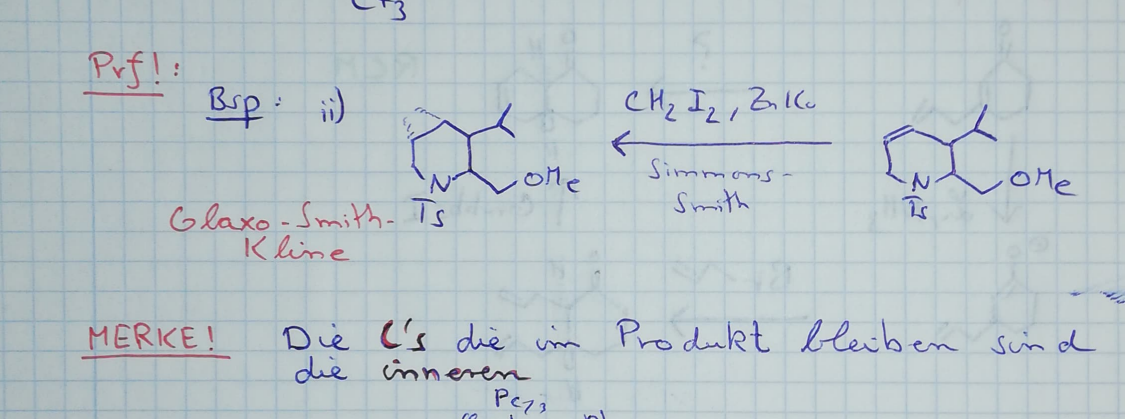 CF3
Prf!:
Bsp: ii)
CH2 I2, ZnKu
Simmons-
Smith
N
Ts
OMe
N
Ts
OMe
Glaxo-Smith-
Kline
MERKE! Die C's die im Produkt bleiben sind
die inneren
PCy3